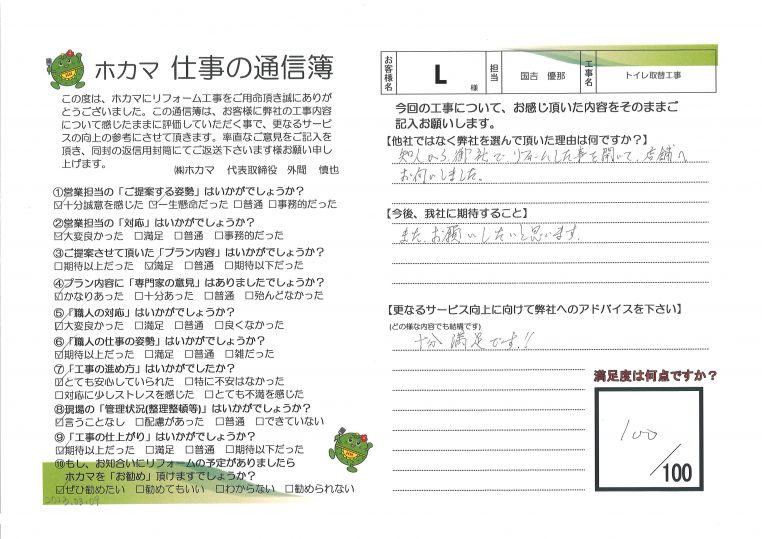 ホカマ 仕事の通信簿
この度は、ホカマにリフォーム工事をご用命頂き誠にありが
とうございました。この通信簿は、お客様に弊社の工事内容
について感じたままに評価していただく事で、更なるサービ
スの向上の参考にさせて頂きます。率直なご意見をご記入を
頂き、同封の返信用封筒にてご返送下さいます様お願い申し
上げます。
㈱ホカマ 代表取締役 外間 慎也
①営業担当の「ご提案する姿勢」はいかがでしょうか？
☑十分誠意を感じた ☑一生懸命だった □普通 □事務的だった
②営業担当の「対応」はいかがでしょうか？
☑大変良かった □満足 □普通 □事務的だった
③ご提案させて頂いた「プラン内容」はいかがでしょうか？
□期待以上だった ☑満足 □普通 □期待以下だった
④プラン内容に「専門家の意見」はありましたでしょうか？
☑かなりあった □十分あった □普通 □殆んどなかった
⑤「職人の対応」はいかがでしょうか？
☑大変良かった □満足 □普通 □良くなかった
⑥「職人の仕事の姿勢」はいかがでしょうか？
☑期待以上だった □満足 □普通 □雑だった
⑦「工事の進め方」はいかがでしたか？
☑とても安心していられた □特に不安はなかった
□対応に少しストレスを感じた □とても不満を感じた
⑧現場の「管理状況(整理整頓等)」はいかがでしょうか？
☑言うことなし □配慮があった □普通 □できていない
⑨「工事の仕上がり」はいかがでしょうか？
☑期待以上だった □満足 □普通 □期待以下だった
⑩もし、お知合いにリフォームの予定がありましたら
ホカマを「お勧め」頂けますでしょうか？
☑ぜひ勧めたい □勧めてもいい □わからない □勧められない
2023.03.09
お客様名 L 様 担当 国吉 優那 工事名 トイレ取替工事
今回の工事について、お感じ頂いた内容をそのままご
記入お願いします。
【他社ではなく弊社を選んで頂いた理由は何ですか？】
知人から御社でリフォームした事を聞いて、店舗へ
お伺いしました。
【今後、我社に期待すること】
また、お願いしたいと思います。
【更なるサービス向上に向けて弊社へのアドバイスを下さい】
(どの様な内容でも結構です)
十分満足です!!
満足度は何点ですか？
100
/100